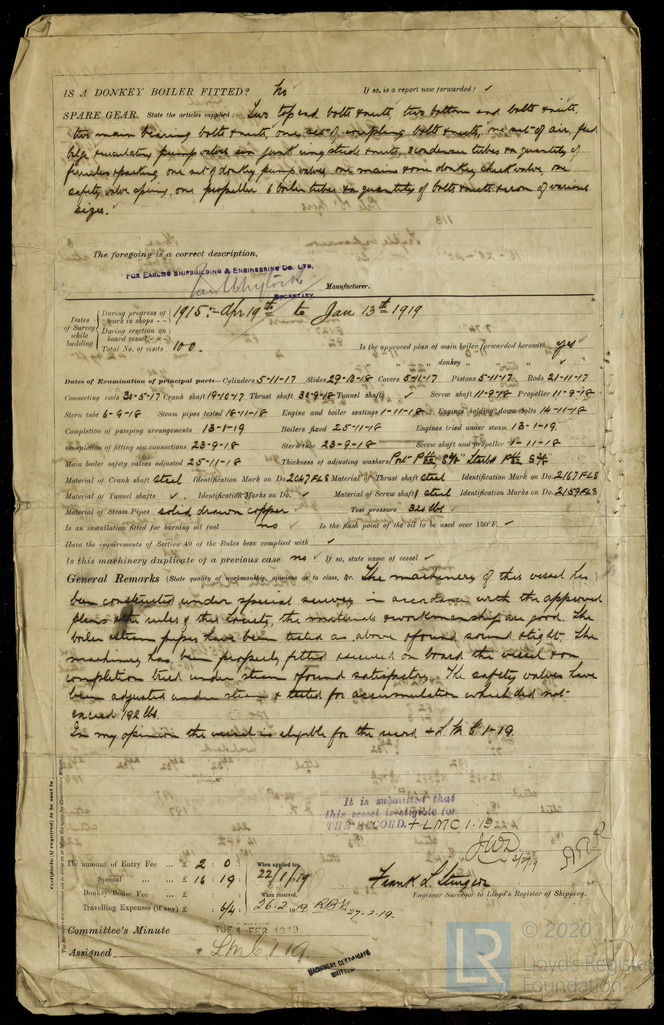 IS A DONKEY BOILER FITTED? No If so, is a report now forwarded? ✓
SPARE GEAR. State the articles supplied:— Two top end bolts & nuts, two bottom end bolts & nuts,
two main bearing bolts & nuts, one set of coupling bolts & nuts, one set of air, feed
bilge & circulating pump valves, junk ring studs & nuts, condenser tubes & a quantity of
ferrules & packing, one set of donkey pump valves, one main & one donkey check valve, one
safety valve spring, one propeller 6 boiler tubes & a quantity of bolts & nuts & iron of various
sizes.
The foregoing is a correct description,
FOR EARLE'S SHIPBUILDING & ENGINEERING CO. LTD.
SECRETARY. Manufacturer.
Dates of Survey while building
During progress of work in shops - - 1915:- Apr 19th to Jan 13th 1919
During erection on board vessel - - -
Total No. of visits 100.
Is the approved plan of main boiler forwarded herewith yes
" " " donkey " " ✓
Dates of Examination of principal parts—Cylinders 5-11-17 Slides 29-10-18 Covers 5-11-17 Pistons 5-11-17 Rods 21-11-17
Connecting rods 30-5-17 Crank shaft 19-10-17 Thrust shaft 30-9-18 Tunnel shafts ✓ Screw shaft 11-9-18 Propeller 11-9-18
Stern tube 6-9-18 Steam pipes tested 18-11-18 Engine and boiler seatings 1-11-18 Engines holding down bolts 14-11-18
Completion of pumping arrangements 13-1-19 Boilers fixed 25-11-18 Engines tried under steam 13-1-19
Completion of fitting sea connections 23-9-18 Stern tube 23-9-18 Screw shaft and propeller 1-11-18
Main boiler safety valves adjusted 25-11-18 Thickness of adjusting washers Port
Material of Crank shaft Steel Identification Mark on Do. 2047FLS Material of Thrust shaft Steel Identification Mark on Do. 2167FLS
Material of Tunnel shafts ✓ Identification Marks on Do. ✓ Material of Screw shaft Steel Identification Marks on Do. 2159FLS
Material of Steam Pipes solid drawn copper ✓ Test pressure 360 lbs ✓
Is an installation fitted for burning oil fuel no ✓ Is the flash point of the oil to be used over 150°F. ✓
Have the requirements of Section 49 of the Rules been complied with ✓
Is this machinery duplicate of a previous case no ✓ If so, state name of vessel ✓
General Remarks (State quality of workmanship, opinions as to class, &c. The machinery of this vessel has
been constructed under special survey in accordance with the approved
plans & the rules of this Society, the materials & workmanship are good. The
boilers & steam pipes have been tested as above & found sound & tight. The
machinery has been properly fitted & secured on board the vessel & on
completion tried under steam & found satisfactory. The safety valves have
been adjusted under steam & tested for accumulation which did not
exceed 192 lbs.
In my opinion the vessel is eligible for the record + L.M.C 1-19.
It is submitted that
this vessel is eligible for
THE RECORD. + LMC 1.19
Certificate (if required) to be sent to
The amount of Entry Fee ... £ 2 : 0 : When applied for, 22/1/19
Special ... ... £ 16 : 19 :
Donkey Boiler Fee ... £ : : When received,
Travelling Expenses (if any) £ : 6/4 : 26.2.19 27.2.19
Frank L. Sturgeon
Engineer Surveyor to Lloyd's Register of Shipping.
Committee's Minute TUE. 4 FEB 1919
Assigned + LMC 1.19
MACHINERY CERTIFICATE
WRITTEN
LR
© 2020
Lloyd's Register
Foundation